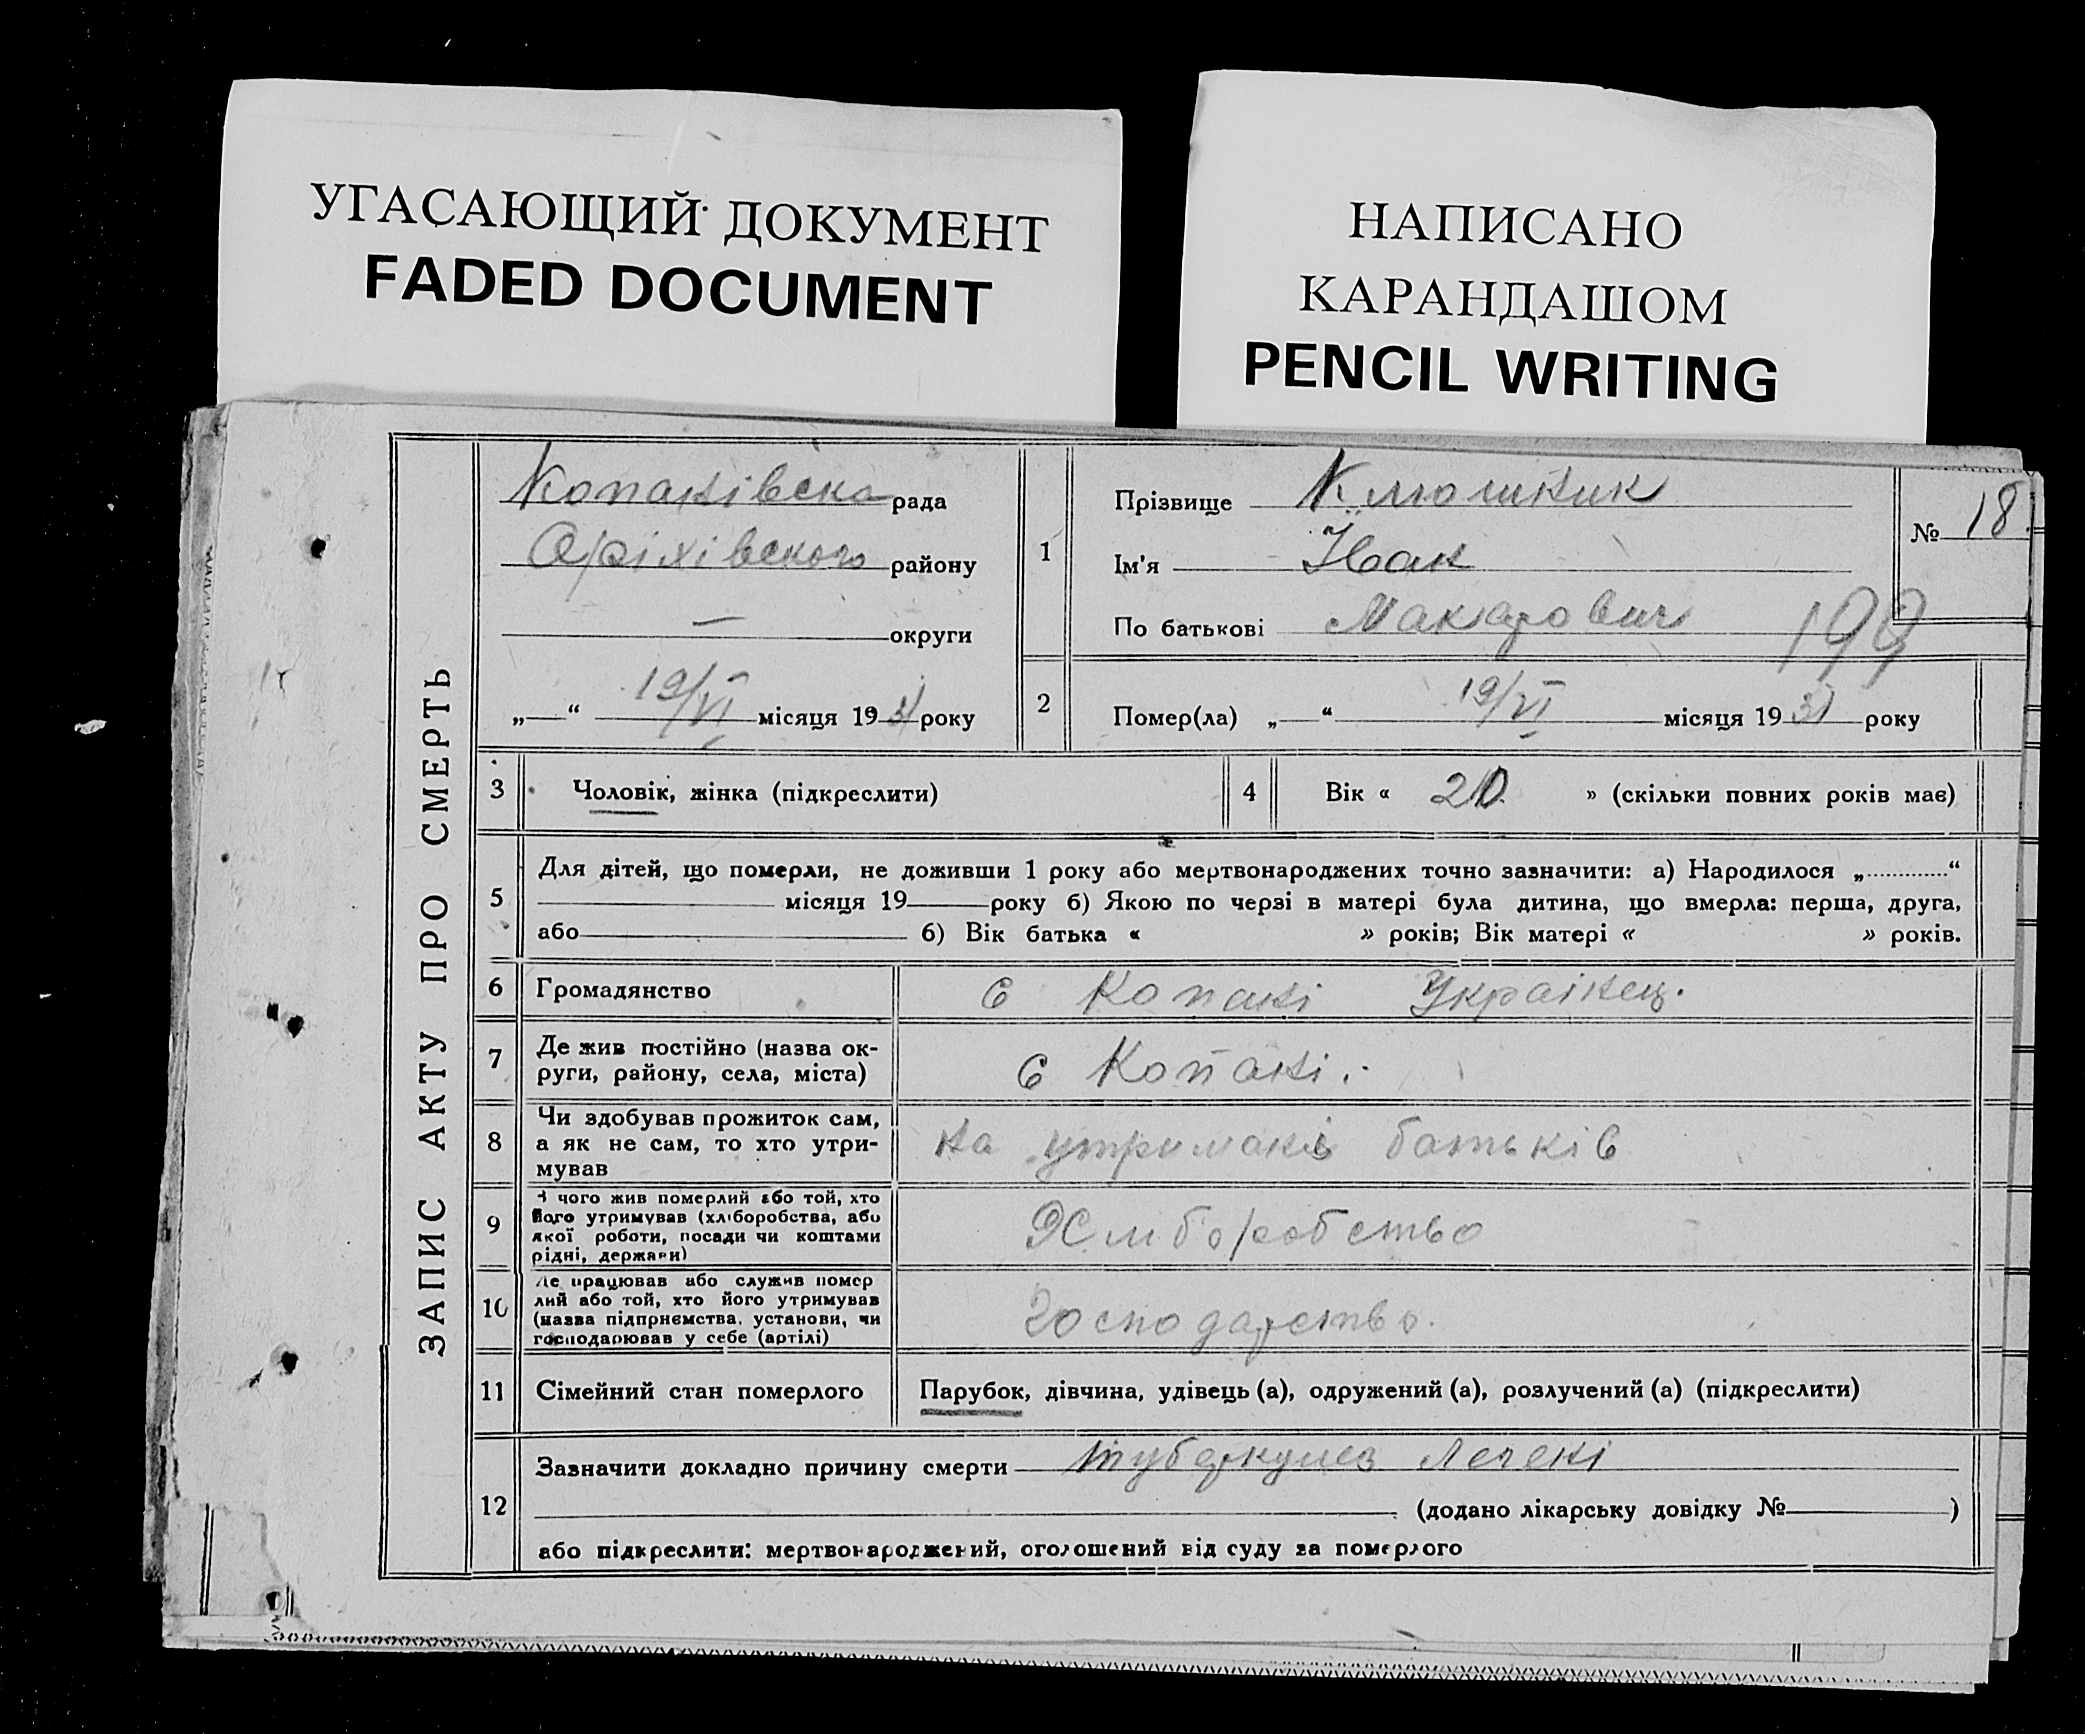 УГАСАЮЩИЙ ДОКУМЕНТ
FADED DOCUMENT
НАПИСАНО
КАРАНДАШОМ
PENCIL WRITING
ЗАПИС АКТУ ПРО СМЕРТЬ
Копанівська рада
Оріхівського району
— округи
„—“ 19/VI місяця 1931 року
1
Прізвище Клюшник
Ім'я Іван
По батькові Макарович
№ 18
199
2
Помер(ла) „—“ 19/VI місяця 1931 року
3 Чоловік, жінка (підкреслити)
4 Вік « 20 » (скільки повних років має)
5
Для дітей, що померли, не доживши 1 року або мертвонароджених точно зазначити: а) Народилося „............“
місяця 19 року б) Якою по черзі в матері була дитина, що вмерла: перша, друга,
або б) Вік батька « » років; Вік матері « » років.
6 Громадянство
с Копані Українец.
7 Де жив постійно (назва ок-
руги, району, села, міста)
с Копані.
8 Чи здобував прожиток сам,
а як не сам, то хто утри-
мував
на утримані батьків
9 З чого жив померлий або той, хто
його утримував (хліборобства, або
якої роботи, посади чи коштами
рідні, держави)
Хліборобство
10 Де працював або служив помер
лий або той, хто його утримував
(назва підприємства, установи, чи
господарював у себе (артілі)
Господарство.
11 Сімейний стан померлого
Парубок, дівчина, удівець (а), одружений (а), розлучений (а) (підкреслити)
12
Зазначити докладно причину смерти туберкулез легені
(додано лікарську довідку № )
або підкреслити: мертвонароджений, оголошений від суду за померлого